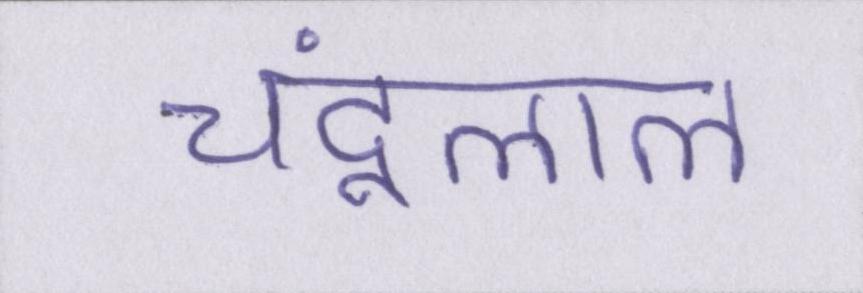 चंदूलाल